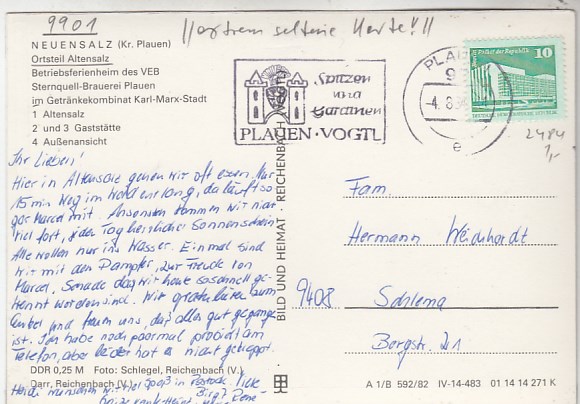 9901
!! extrem seltene Karte !!
NEUENSALZ (Kr. Plauen)
Ortsteil Altensalz
Betriebsferienheim des VEB
Sternquell-Brauerei Plauen
im Getränkekombinat Karl-Marx-Stadt
1 Altensalz
2 und 3 Gaststätte
4 Außenansicht
Spitzen
und
Gardinen
PLAUEN · VOGTL
PLAU
99
-4. 8.
e
10
2484
1,-
Ihr Lieben!
Hier in Altensalz gehen wir oft essen. Nur
15 min Weg im Wald entlang, da läuft so
gar Marcel mit. Ansonsten kommen wir nicht
viel fort, jeden Tag herrlicher Sonnenschein
Alle wollen nur ins Wasser. Einmal sind
wir mit den Dampfer, zur Freude von
Marcel. Schade das wir heute so schnell ge-
trennt worden sind. Wir gratulieren zum
Enkel und freuen uns, das alles gut gegangen
ist. Ich habe noch paarmal probiert am
Telefon, aber leider hat es nicht geklappt.
DDR 0,25 M Foto: Schlegel, Reichenbach (V.)
Darr, Reichenbach (V.)
wünschen viel Spaß in
BILD UND HEIMAT · REICHENBACH
Fam.
Hermann Weinhardt
9408 Schlema
Bergstr. 21
A 1/B 592/82 IV-14-483 01 14 14 271 K